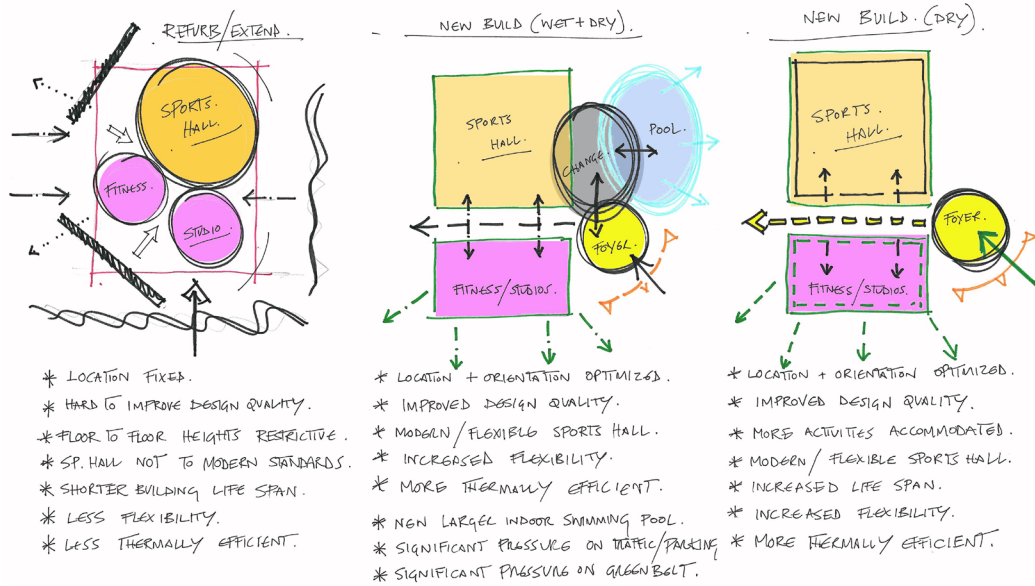 REFURB/EXTEND.
SPORTS
HALL.
FITNESS.
STUDIO
* LOCATION FIXED.
* HARD TO IMPROVE DESIGN QUALITY.
* FLOOR TO FLOOR HEIGHTS RESTRICTIVE.
* SP. HALL NOT TO MODERN STANDARDS.
* SHORTER BUILDING LIFE SPAN.
* LESS FLEXIBILITY.
* LESS THERMALLY EFFICIENT.
NEW BUILD (WET+DRY)
SPORTS
HALL
CHANGE.
POOL.
FOYER
FITNESS/STUDIOS.
* LOCATION + ORIENTATION OPTIMIZED.
* IMPROVED DESIGN QUALITY.
* MODERN/FLEXIBLE SPORTS HALL.
* INCREASED FLEXIBILITY.
* MORE THERMALLY EFFICIENT.
* NEW LARGER INDOOR SWIMMING POOL.
* SIGNIFICANT PRESSURE ON TRAFFIC/PARKING
* SIGNIFICANT PRESSURE ON GREENBELT.
NEW BUILD. (DRY)
SPORTS.
HALL.
FOYER.
FITNESS/STUDIOS.
* LOCATION + ORIENTATION OPTIMIZED.
* IMPROVED DESIGN QUALITY.
* MORE ACTIVITIES ACCOMMODATED.
* MODERN/FLEXIBLE SPORTS HALL.
* INCREASED LIFE SPAN.
* INCREASED FLEXIBILITY.
* MORE THERMALLY EFFICIENT.